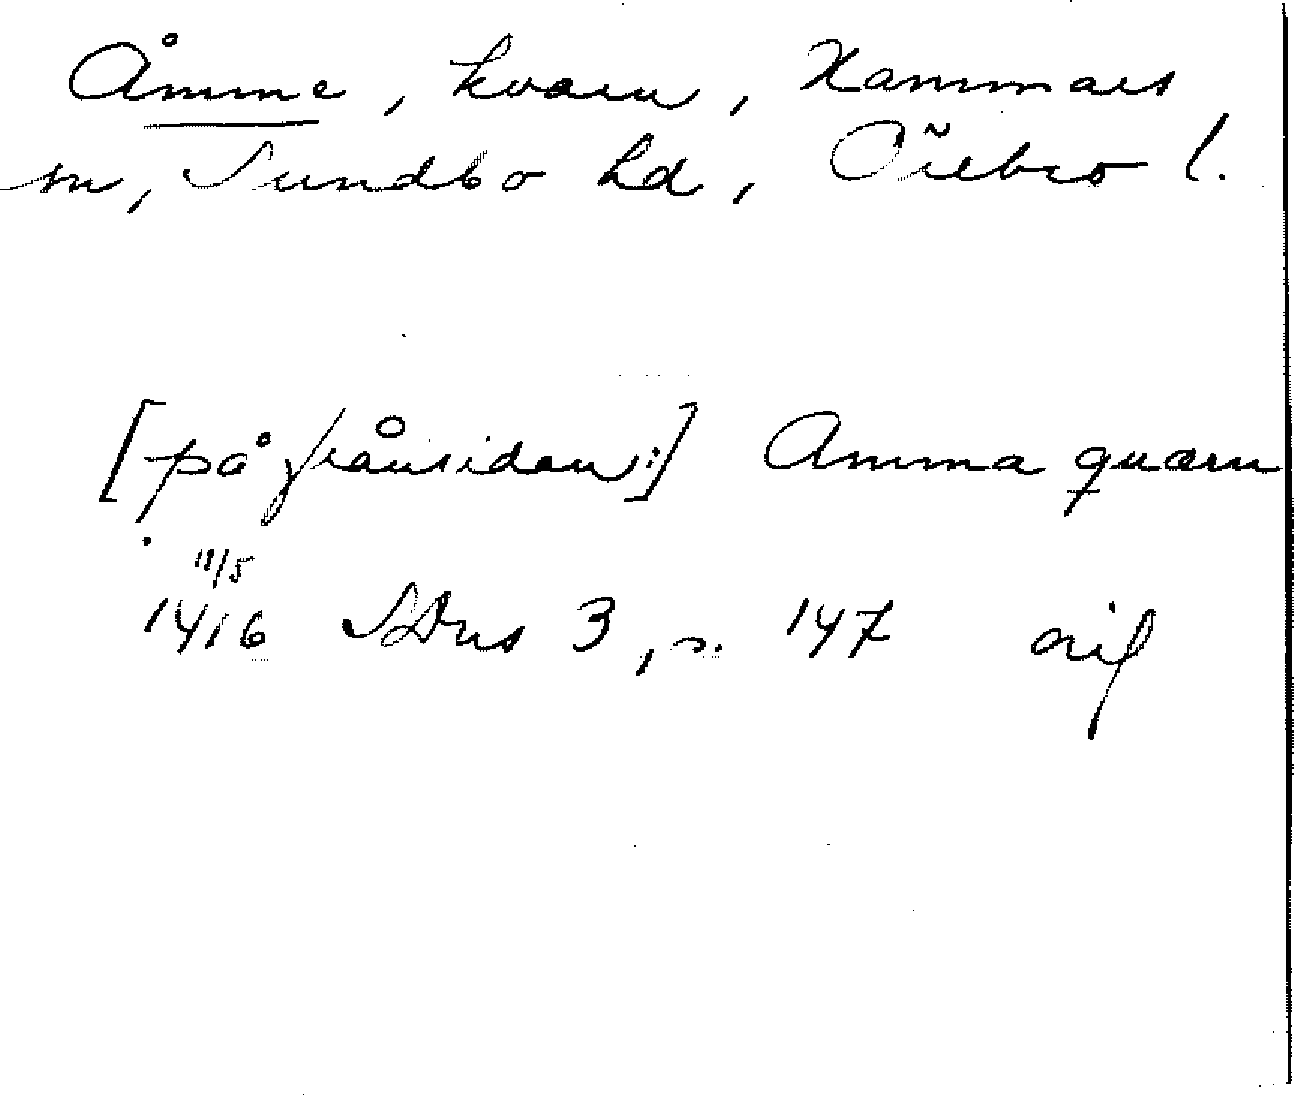 Åmme, kvarn, Hammars
sn, Sundbo hd, Örebro l.
[på frånsidan:] Amma quærn
11/5
1416 SDns 3, s. 147 orig